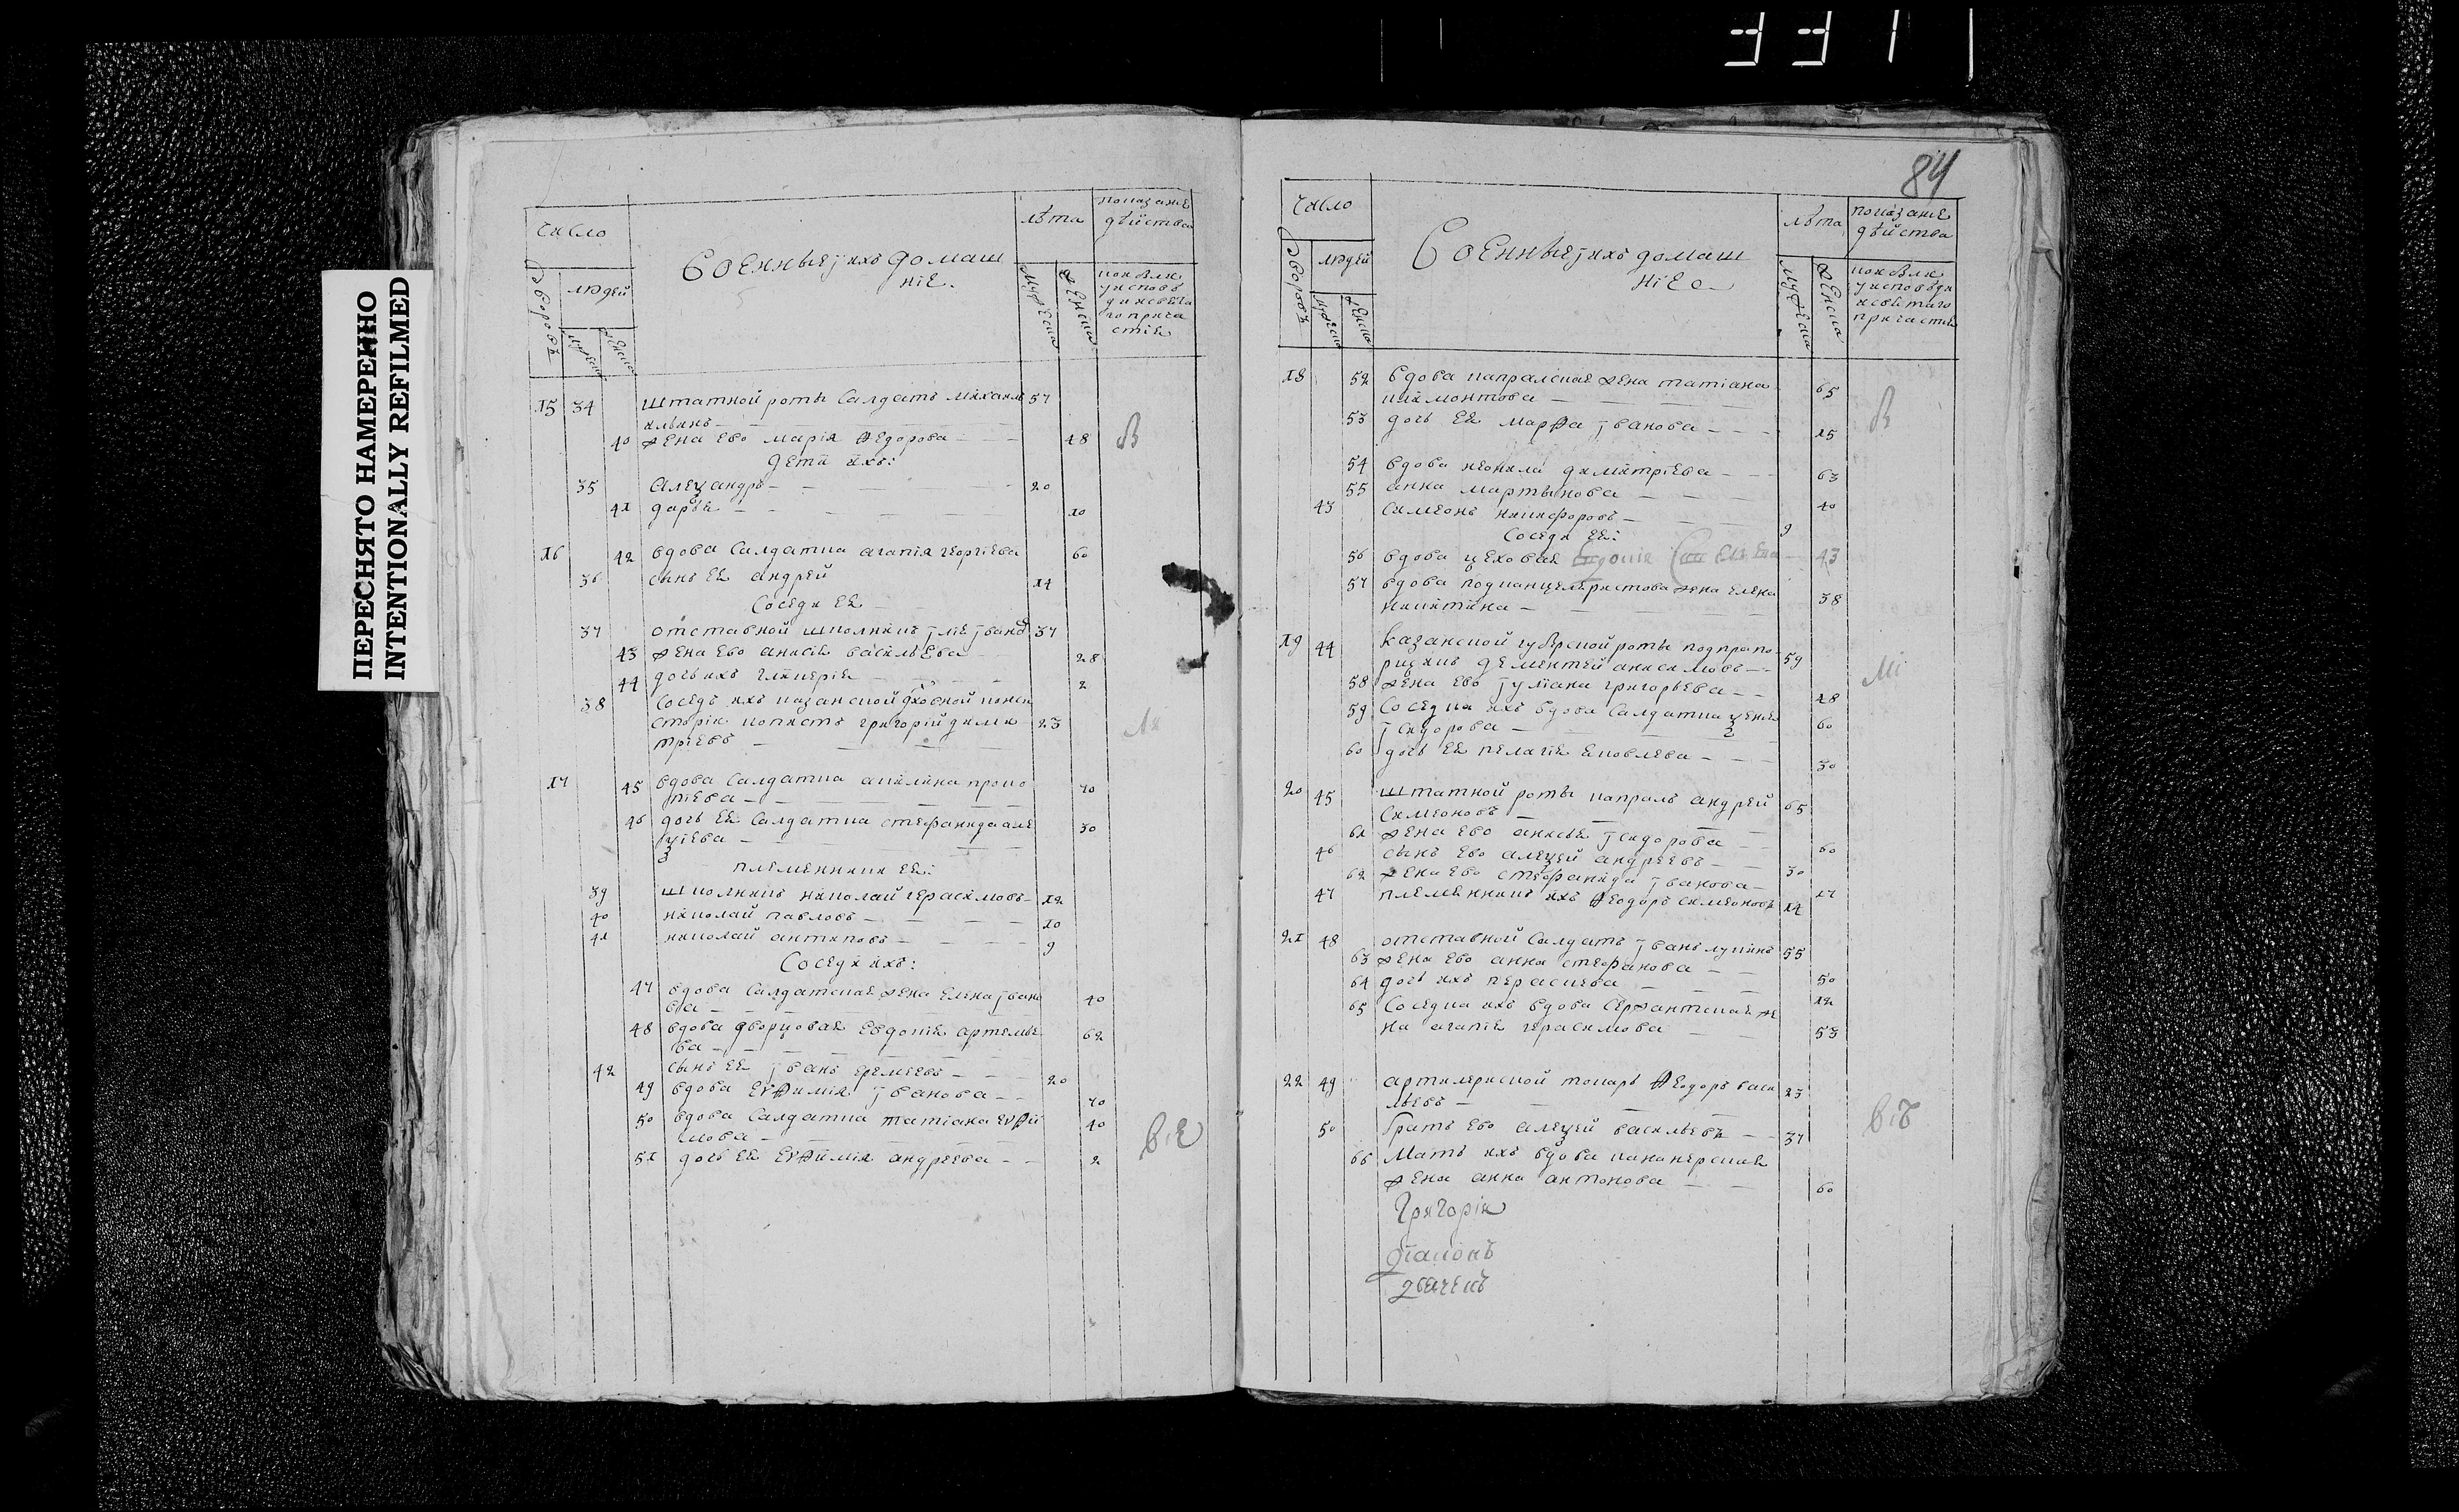 ПЕРЕСНЯТО НАМЕРЕННО
INTENTIONALLY REFILMED
число
дворовъ
людей
мужеска
женска
Военныя ихъ домаш
нiе.
лѣта
мужеска
женска
показанiе
дѣйства
15 34 штатной роты салдатъ михаилъ 57
ильинъ
40 жена ево марiя ѳедорова 48
дети ихъ:
35 алеѯандръ 20
41 дарья 10
16 42 вдова салдатка агапiя георгiева 60
36 сынъ ея андрей 14
соседи ея
37 отставной школникъ iлья iвановъ 37
43 жена ево анисья василъева 28
44 дочь ихъ гликерiя 2
38 соседъ ихъ казанской дховной конси
сторiи копистъ григорiй дими 23
трiевъ
17 45 вдова салдатка акилина проко 70
пiева
46 дочь ея салдатка стефанида але 30
ѯiева
племянники ея:
39 школникъ николай герасимовъ 12
40 николай павловъ 10
41 николай антиповъ 9
Соседи ихъ:
47 вдова салдатская жена елена iвано 40
ва
48 вдова дворцовая евдокiя артемье 62
ва
42 сынъ ея iванъ еремеевъ 20
49 вдова евѳимiя iванова 70
50 вдова салдатка татiана евѳи 40
мова
51 дочь ея евѳимiя андреева 2
84
число
дворовъ
людей
мужеска
женска
Военныя iихъ домаш
нiе
лѣта
мужеска
женска
показанiе
дѣйства
18 52 вдова капралская жена татiана 65
пилмонтова
53 дочь ея марѳа iванова 15
54 вдова неонила димитрiева 63
55 анна мартынова 40
43 симеонъ никифоровъ 9
соседи ея:
56 вдова цеховая 43
57 вдова подканцеляристова жена елена 38
никитина
19 44 казанской губерской роты подпрапо 59
рщикъ дементей анисимовъ
58 жена ево iулiана григорьева 28
59 соседка ихъ вдова салдатка ѯенья 60
iсидорова
60 дочь ея пелагiя яковлева 30
20 45 штатной роты капралъ андрей 65
симеоновъ
61 жена ево анисья iсидорова 60
46 сынъ ево алеѯей андреевъ 30
62 жена ево стефанида iванова 27
47 племянникъ ихъ ѳеодоръ симеоновъ 14
21 48 отставной салдатъ iванъ лукинъ 55
63 жена ево анна стефанова 50
64 дочь ихъ параскева 12
65 соседка ихъ вдова сержантская же
на агапiя герасимова 53
22 49 артилерской токарь ѳеодоръ васи 23
льевъ
50 братъ ево алеѯей васильевъ 37
66 мать ихъ вдова канонерская
жена анна антонова 60
григорiи
дiаконъ